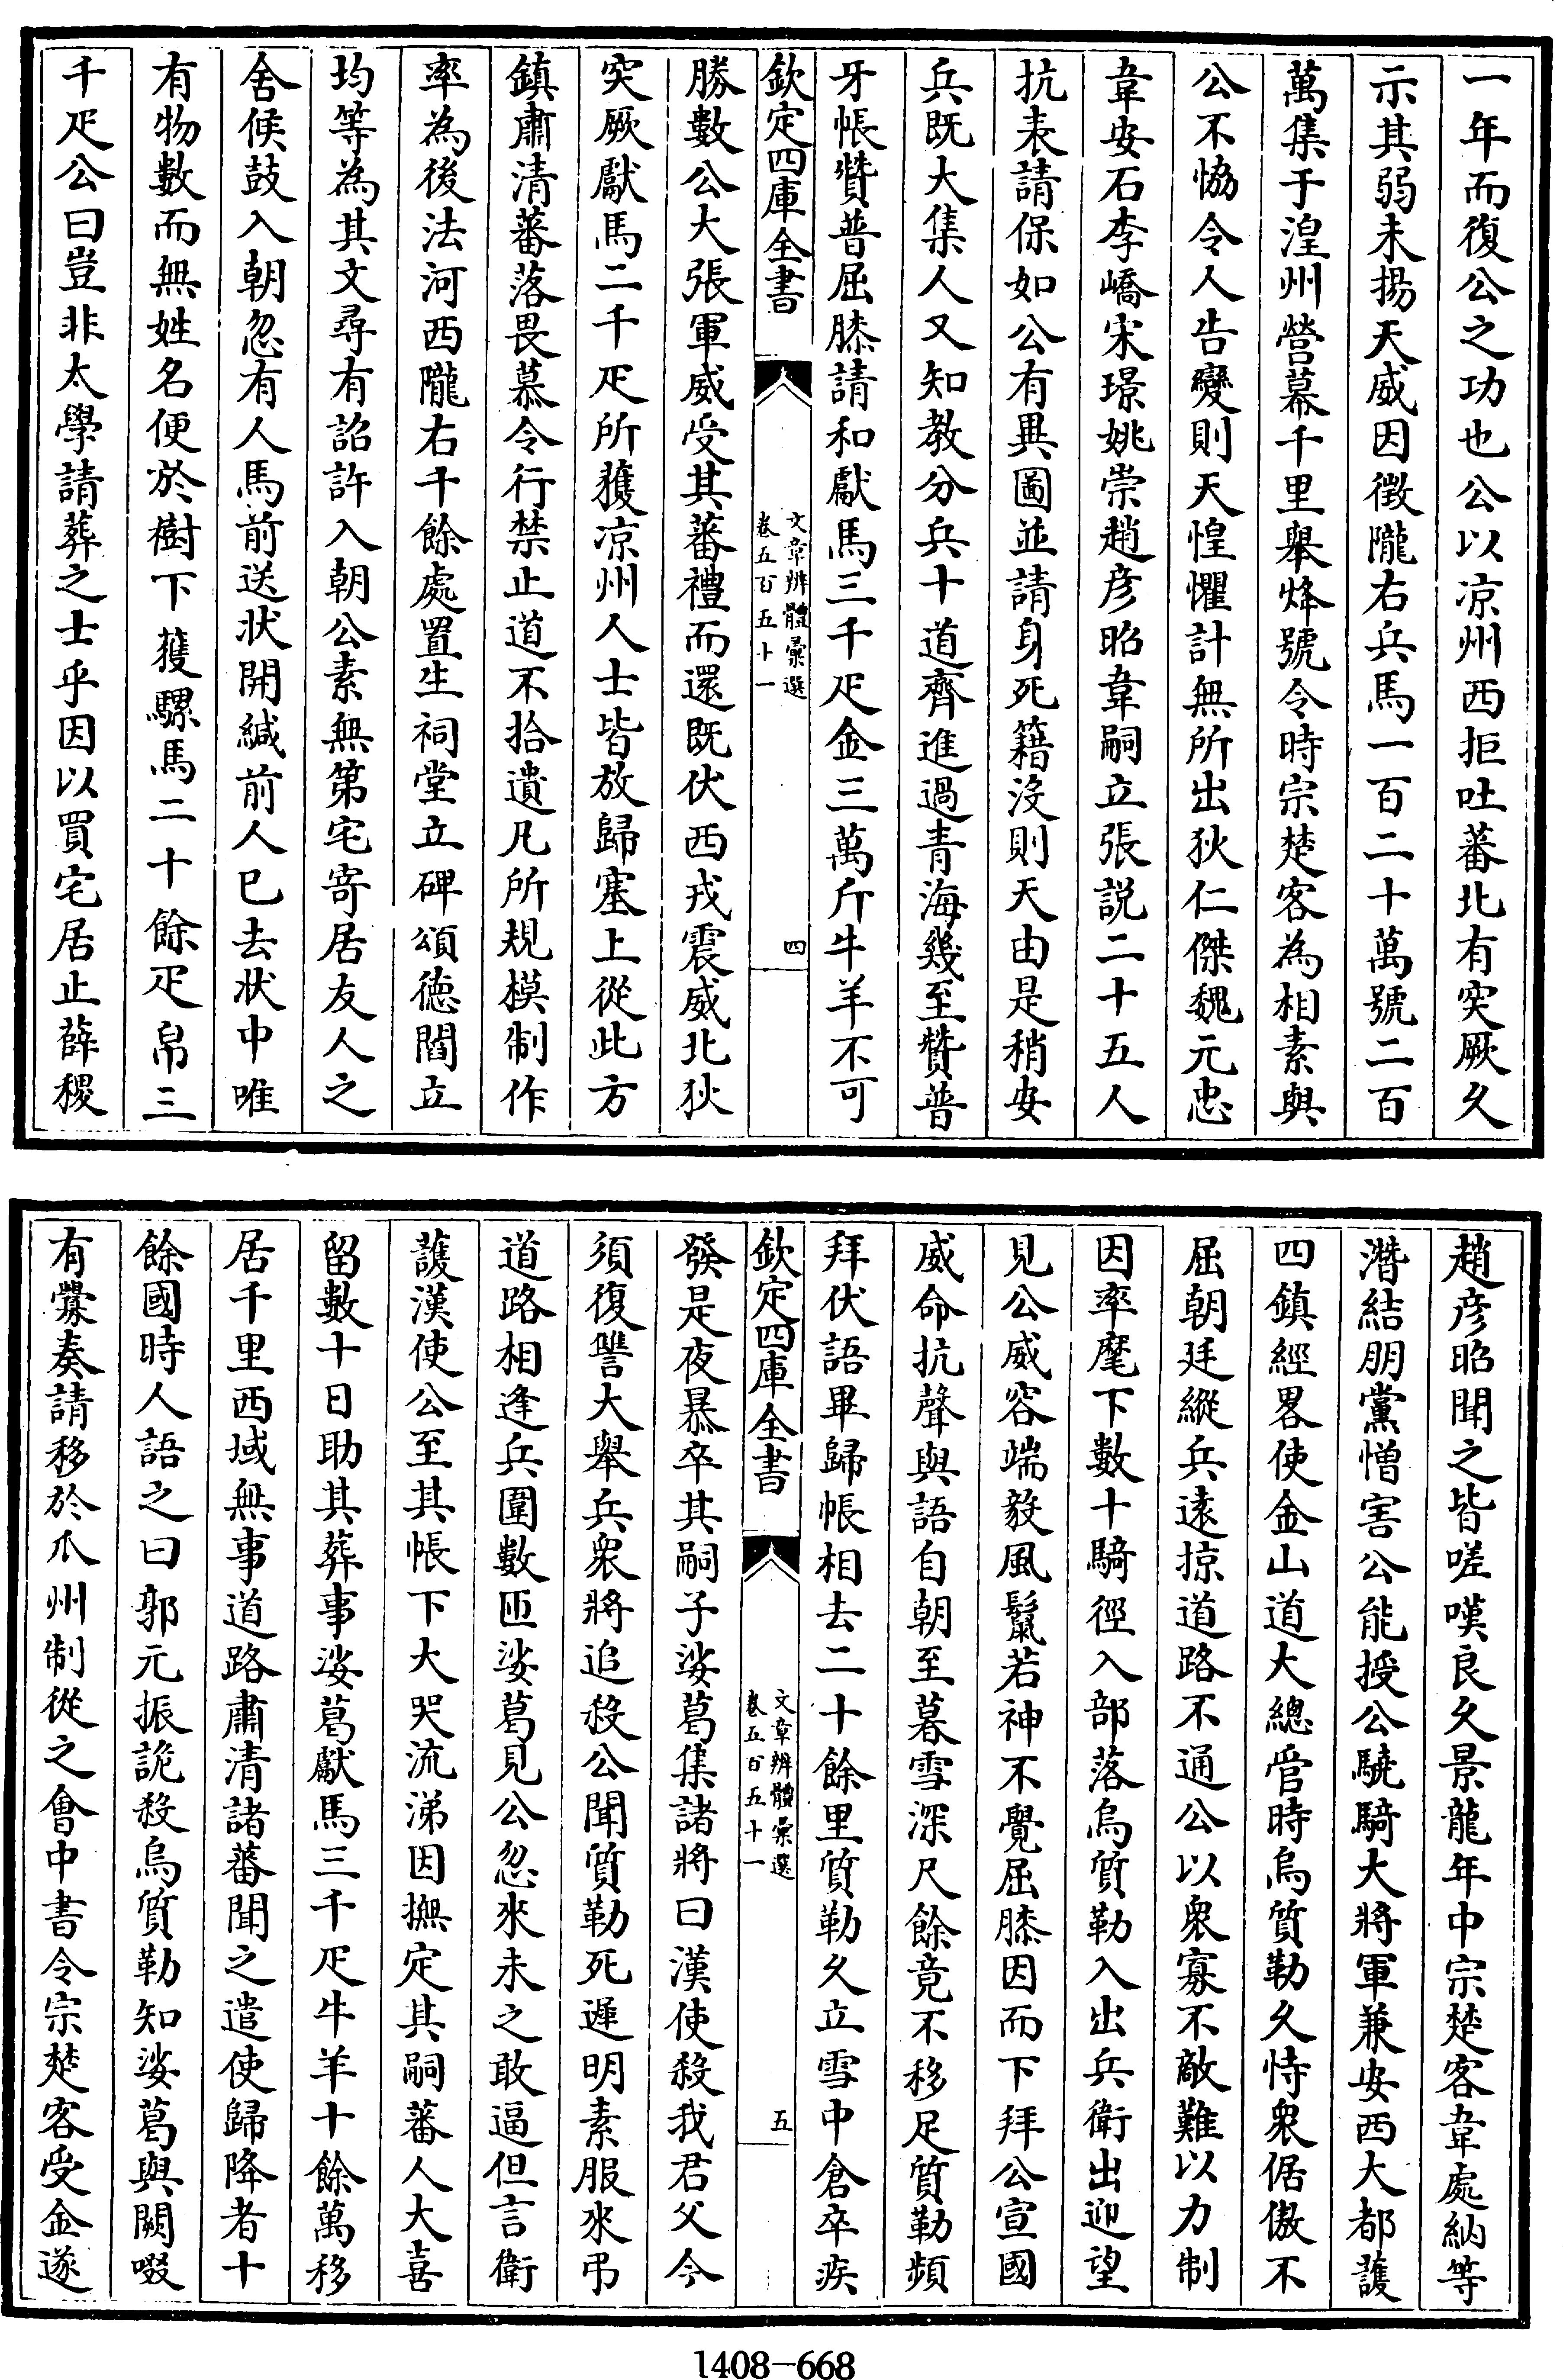 一年而復公之功也公以凉州西拒吐蕃北有突厥久
示其弱未揚天威因徵隴右兵馬一百二十萬號二百
萬集于湟州營幕千里舉烽號令時宗楚客為相素與
公不恊令人告變則天惶懼計無所出狄仁傑魏元忠
韋安石李嶠宋璟姚崇趙彦昭韋嗣立張説二十五人
抗表請保如公有異圖並請身死籍沒則天由是稍安
兵既大集人又知教分兵十道齊進過青海幾至贊普
牙帳贊普屈膝請和獻馬三千疋金三萬斤牛羊不可
欽定四庫全書
文章辨體彙選
卷五百五十一
四
勝數公大張軍威受其蕃禮而還既伏西戎震威北狄
突厥獻馬二千疋所獲凉州人士皆放歸塞上從此方
鎮肅清蕃落畏慕令行禁止道不拾遺凡所規模制作
率為後法河西隴右千餘處置生祠堂立碑頌德閻立
均等為其文尋有詔許入朝公素無第宅寄居友人之
舍候鼓入朝忽有人馬前送状開緘前人已去状中唯
有物數而無姓名便於樹下獲騾馬二十餘疋帛三
千疋公曰豈非太學請葬之士乎因以買宅居止薛稷
趙彦昭聞之皆嗟嘆良久景龍年中宗楚客韋處納等
潛結朋黨憎害公能授公驍騎大將軍兼安西大都護
四鎮經畧使金山道大總管時烏質勒久恃衆倨傲不
屈朝廷縱兵遠掠道路不通公以衆寡不敵難以力制
因率麾下數十騎徑入部落烏質勒入出兵衛出迎望
見公威容端毅風鬣若神不覺屈膝因而下拜公宣國
威命抗聲與語自朝至暮雪深尺餘竟不移足質勒頻
拜伏語畢歸帳相去二十餘里質勒久立雪中倉卒疾
欽定四庫全書
文章辨體彙選
卷五百五十一
五
發是夜暴卒其嗣子娑葛集諸將曰漢使殺我君父今
須復讐大舉兵衆將追殺公聞質勒死遲明素服來弔
道路相逢兵圍數匝娑葛見公忽來未之敢逼但言衛
護漢使公至其帳下大哭流涕因撫定其嗣蕃人大喜
留數十日助其葬事娑葛獻馬三千疋牛羊十餘萬移
居千里西域無事道路肅清諸蕃聞之遣使歸降者十
餘國時人語之曰郭元振詭殺烏質勒知娑葛與闕啜
有釁奏請移於爪州制從之會中書令宗楚客受金遂
1408-668